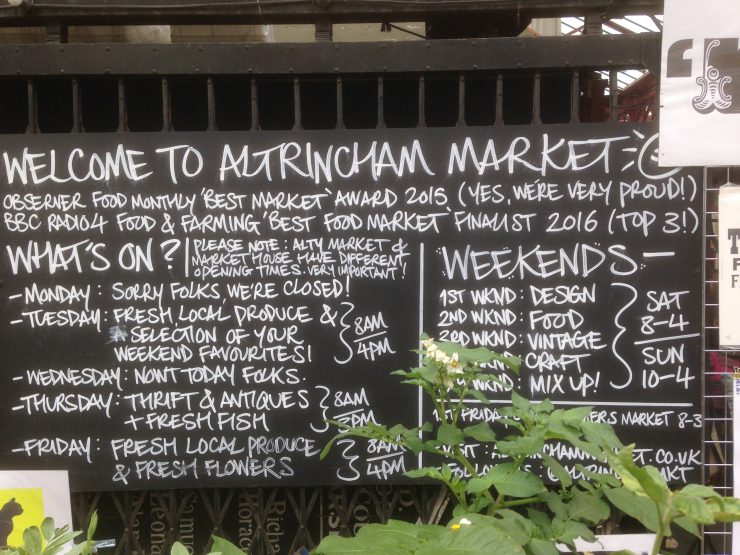 WELCOME TO ALTRINCHAM MARKET
OBSERVER FOOD MONTHLY 'BEST MARKET' AWARD 2015 (YES, WE'RE VERY PROUD!)
BBC RADIO4 FOOD & FARMING 'BEST FOOD MARKET' FINALIST 2016 (TOP 3!)
WHAT'S ON?
PLEASE NOTE: ALTY MARKET &
MARKET HOUSE HAVE DIFFERENT
OPENING TIMES. VERY IMPORTANT!
- MONDAY: SORRY FOLKS, WE'RE CLOSED!
- TUESDAY: FRESH LOCAL PRODUCE &
SELECTION OF YOUR
WEEKEND FAVOURITES!
8AM
4PM
- WEDNESDAY: NOWT TODAY FOLKS.
- THURSDAY: THRIFT & ANTIQUES
+ FRESH FISH
8AM
3PM
- FRIDAY: FRESH LOCAL PRODUCE
& FRESH FLOWERS
8AM
4PM
WEEKENDS -
1ST WKND: DESIGN
2ND WKND: FOOD
3RD WKND: VINTAGE
CRAFT
WKND: MIX UP!
SAT
8-4
SUN
10-4
MARKET 8-3